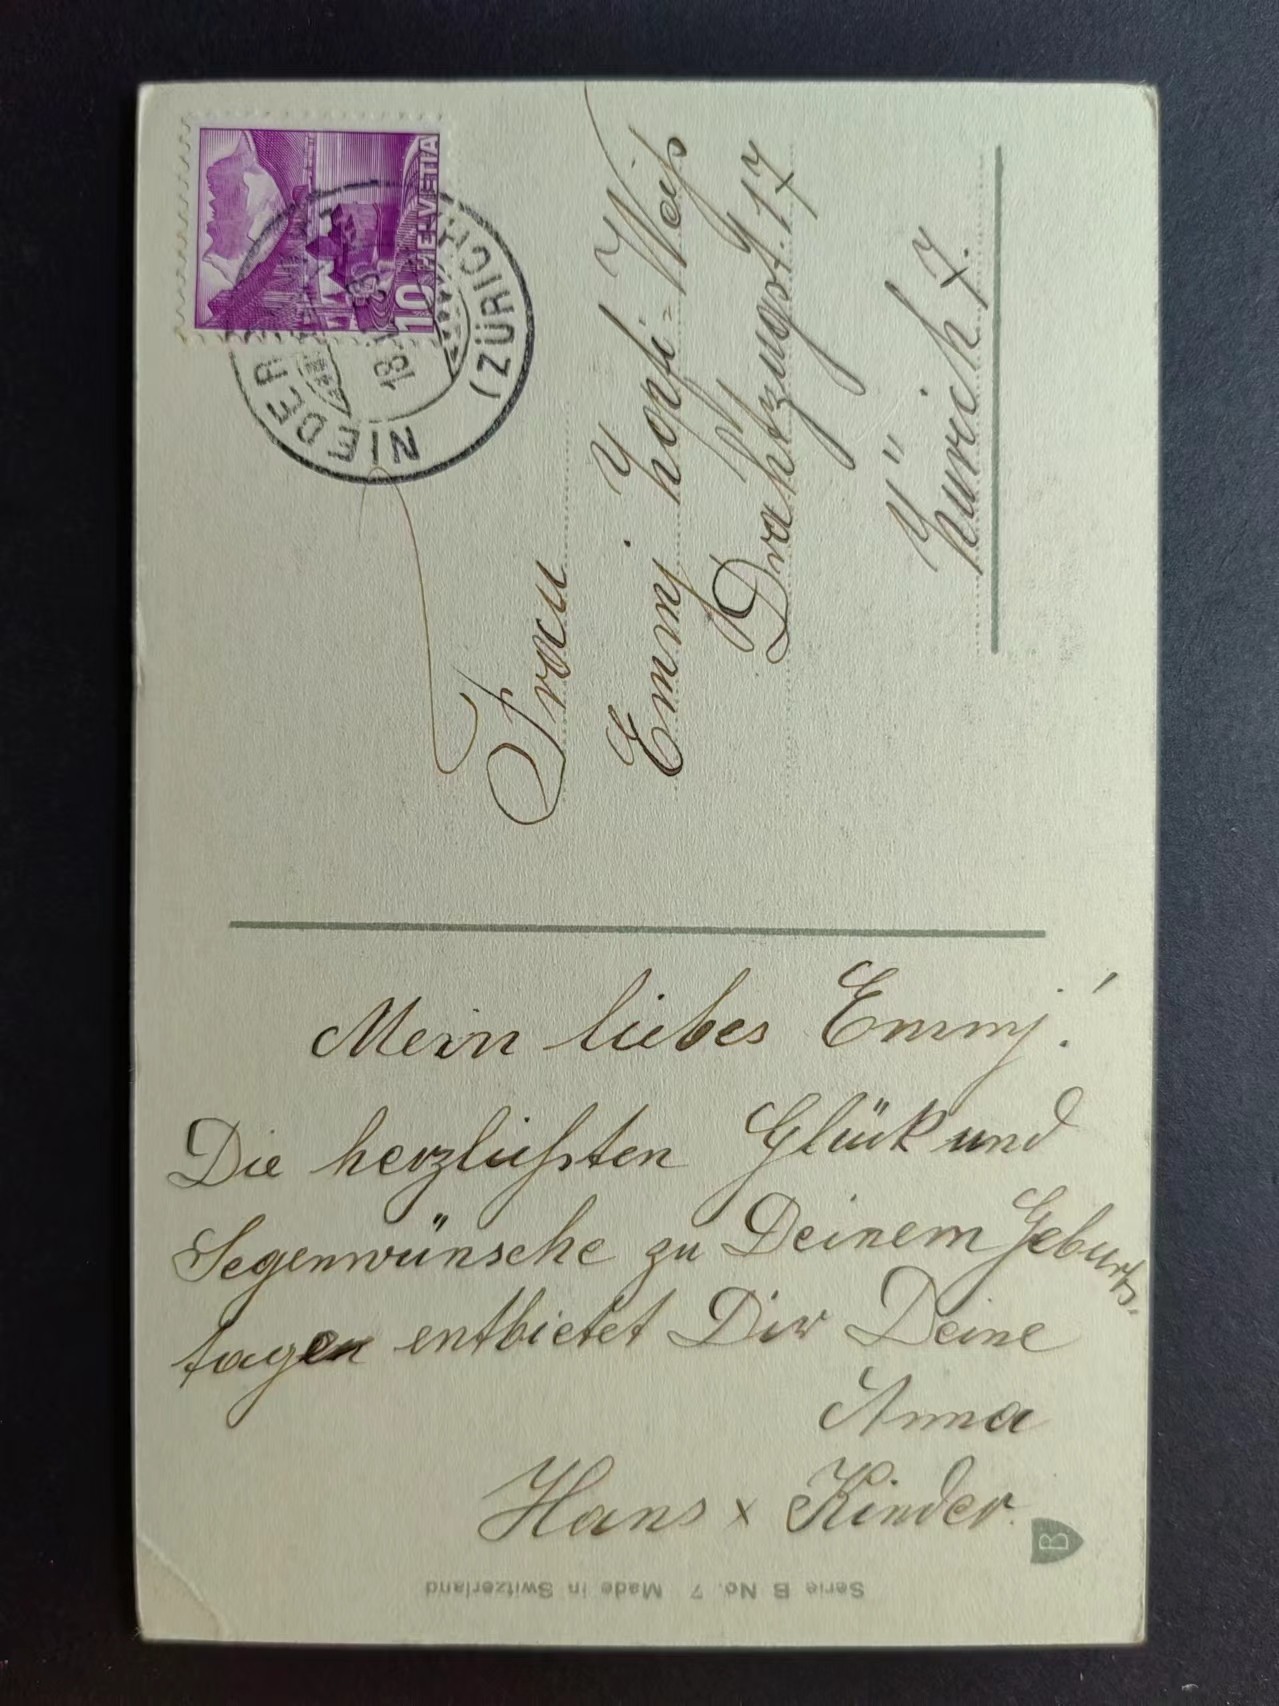 HELVETIA
10
(ZÜRICH)
18.
Frau
Emmy Hopfi=Weiss
Drahtzugst. 17
Zürich 7.
Mein liebes Emmy!
Die herzlichsten Glück und
Segenwünsche zu Deinem Geburts-
tagen entbietet Dir Deine
Anna
Hans x Kinder.
B
Serie B No. 7 Made in Switzerland